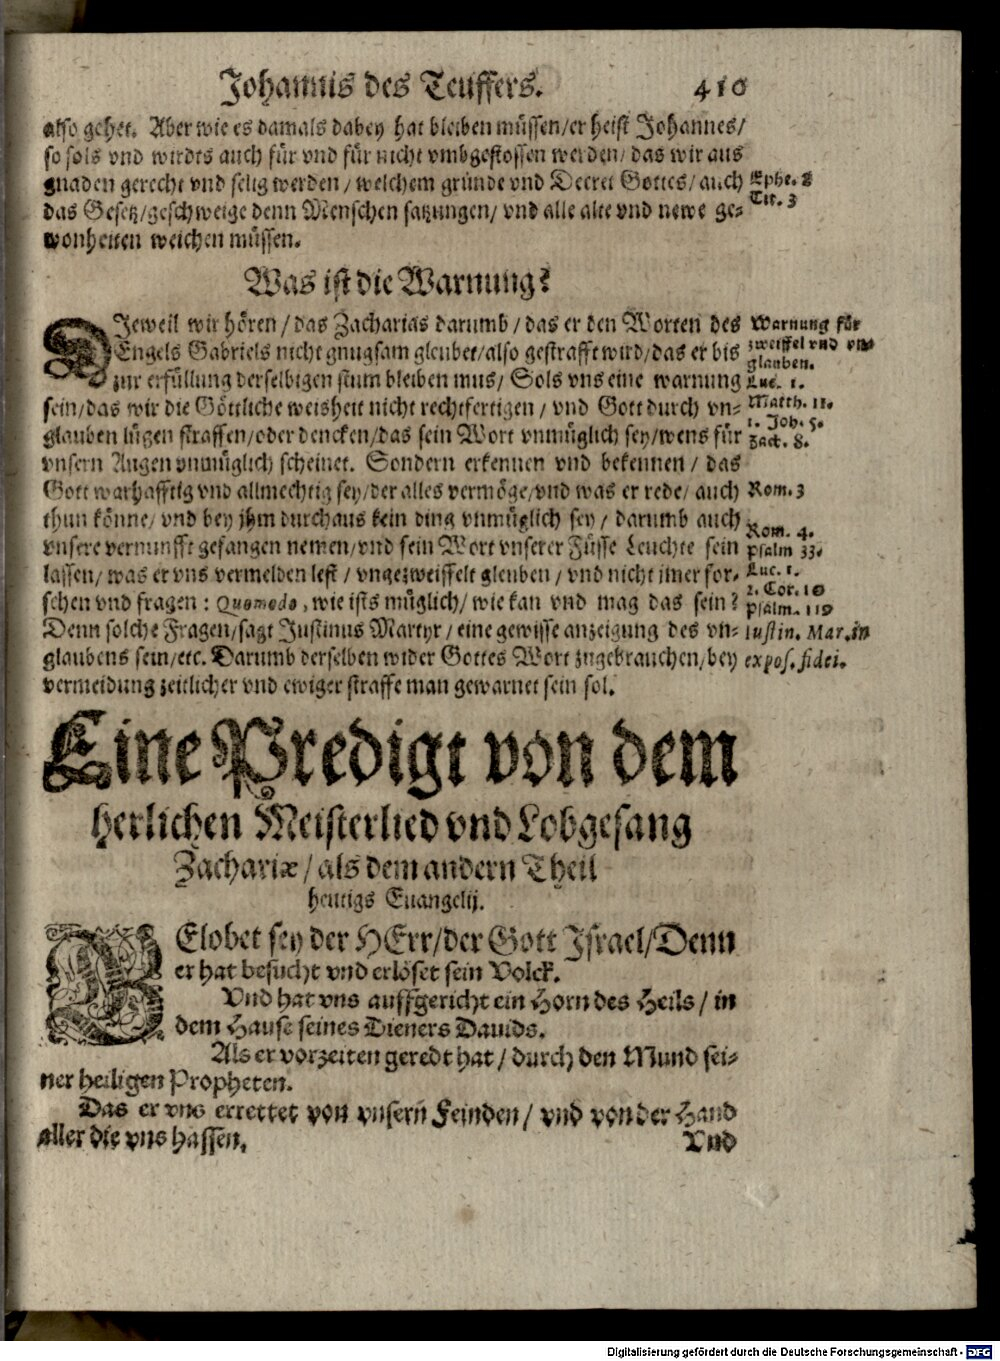 Johannis des Teuffers. 410
also gehet. Aber wie es damals dabey hat bleiben müssen/er heist Johannes/
so sols vnd wirdts auch für vnd für nicht vmbgestossen werden/ das wir aus
gnaden gerecht vnd selig werden / welchem gründe vnd Decret Gottes/ auch
Ephe. 2
das Gesetz/geschweige denn Menschen satzungen/ vnd alle alte vnd newe ge-
Tit. 3
wonheiten weichen müssen.
Was ist die Warnung?
DJeweil wir hören / das Zacharias darumb / das er den Worten des
Warnung für
Engels Gabriels nicht gnugsam gleubet/also gestrafft wird/das er bis
zweiffel vnd vn-
glauben.
zur erfüllung derselbigen stum bleiben mus/ Sols vns eine warnung
Luc. 1.
sein/das wir die Göttliche weisheit nicht rechtfertigen / vnd Gott durch vn-
Matth. 11.
1. Joh. 5.
glauben lügen straffen/oder dencken/das sein Wort vnmüglich sey/wens für
Zach. 8.
vnsern Augen vnmüglich scheinet. Sondern erkennen vnd bekennen / das
Gott warhafftig vnd allmechtig sey/der alles vermöge/vnd was er rede/ auch
Rom. 3
thun könne/ vnd bey jhm durchaus kein ding vnmüglich sey / darumb auch
Rom. 4.
vnsere vernunfft gefangen nemen/vnd sein Wort vnserer Füsse Leuchte sein
Psalm 33.
lassen/ was er vns vermelden lest / vngezweiffelt gleuben / vnd nicht jmer for-
Luc. 1.
2. Cor. 10
schen vnd fragen : Quomodo, wie ists müglich/ wie kan vnd mag das sein?
Psalm. 119
Denn solche Fragen/sagt Justinus Martyr / eine gewisse anzeigung des vn-
Iustin. Mar. in
glaubens sein/etc. Darumb derselben wider Gottes Wort zugebrauchen/bey
expos. fidei.
vermeidung zeitlicher vnd ewiger straffe man gewarnet sein sol.
Eine Predigt von dem
herlichen Meisterlied vnd Lobgesang
Zachariæ / als dem andern Theil
heutigs Euangelij.
GElobet sey der HErr/der Gott Jsrael/Denn
er hat besucht vnd erlöset sein Volck.
Vnd hat vns auffgericht ein Horn des Heils / in
dem Hause seines Dieners Dauids.
Als er vorzeiten geredt hat / durch den Mund sei-
ner heiligen Propheten.
Das er vns errettet von vnsern Feinden / vnd von der Hand
aller die vns hassen.
Vnd
Digitalisierung gefördert durch die Deutsche Forschungsgemeinschaft - DFG